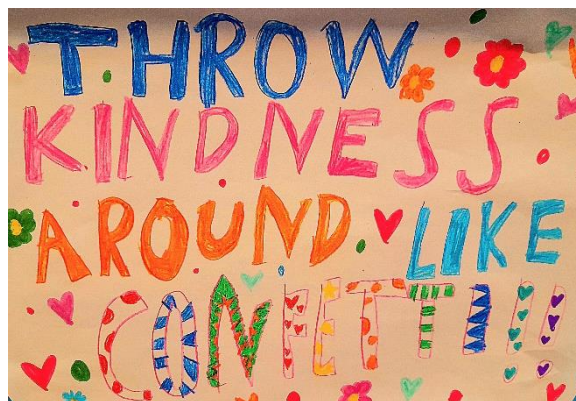 THROW
KINDNESS
AROUND LIKE
CONFETTI!!